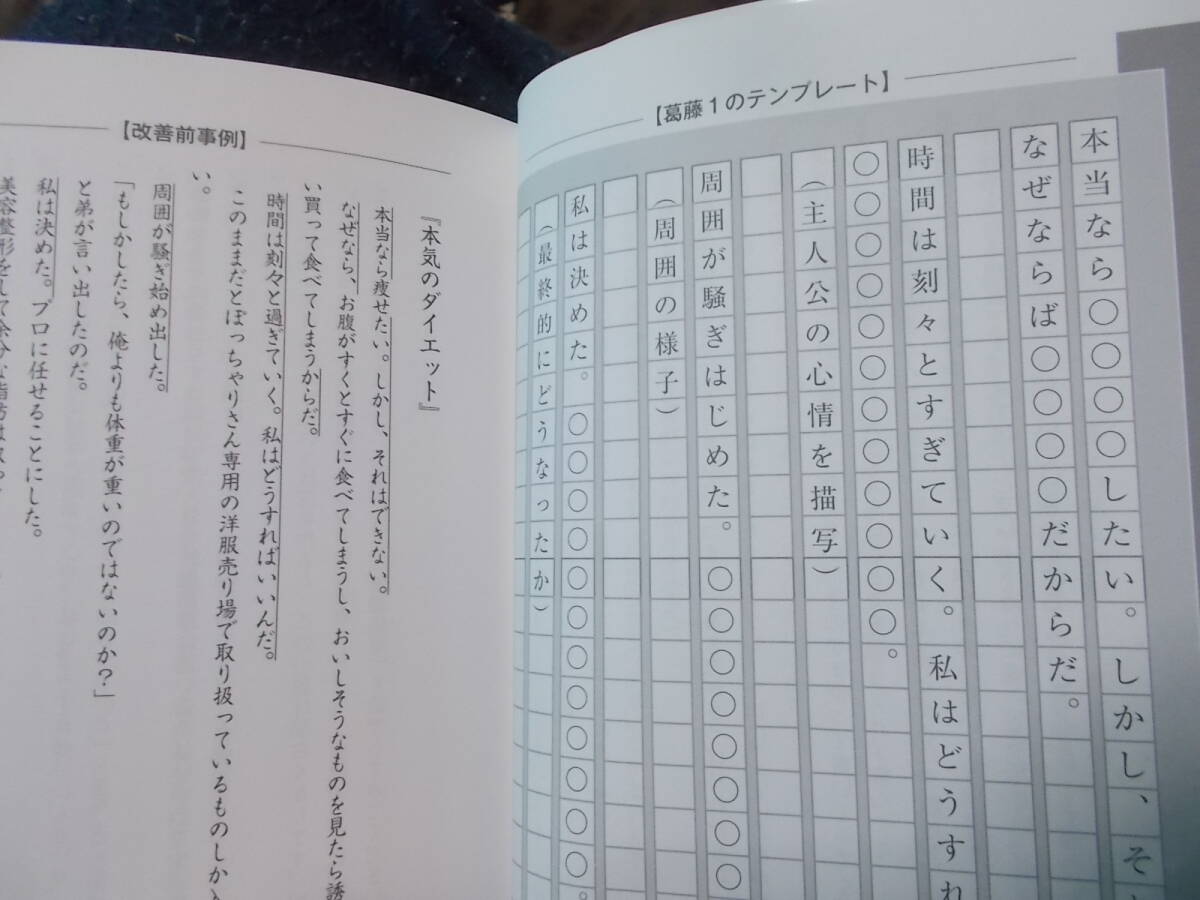 【葛藤１のテンプレート】
本当なら〇〇〇〇したい。しかし、そ
なぜならば〇〇〇〇だからだ。
時間は刻々とすぎていく。私はどうすれ
〇〇〇〇〇〇〇〇〇〇〇〇。
（主人公の心情を描写）
周囲が騒ぎはじめた。〇〇〇〇〇〇〇〇
（周囲の様子）
私は決めた。〇〇〇〇〇〇〇〇〇〇〇〇。
（最終的にどうなったか）
【改善前事例】
『本気のダイエット』
本当なら痩せたい。しかし、それはできない。
なぜなら、お腹がすくとすぐに食べてしまうし、おいしそうなものを見たら誘
い買って食べてしまうからだ。
時間は刻々と過ぎていく。私はどうすればいいんだ。
このままだとぽっちゃりさん専用の洋服売り場で取り扱っているものしか
い。
周囲が騒ぎ始め出した。
「もしかしたら、俺よりも体重が重いのではないのか？」
と弟が言い出したのだ。
私は決めた。プロに任せることにした。
美容整形をして余分な脂肪は取っ